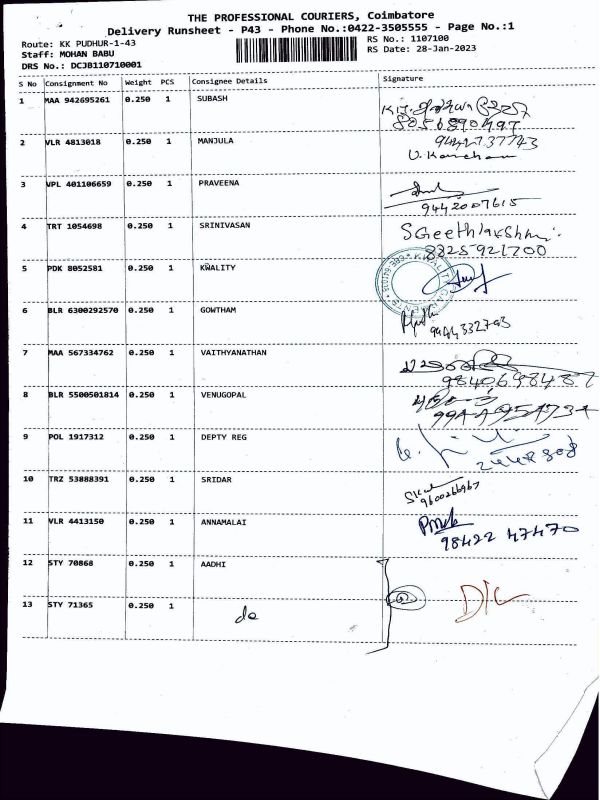 THE PROFESSIONAL COURIERS, Coimbatore
Delivery Runsheet - P43 - Phone No.:0422-3505555 - Page No.:1
Route: KK PUDHUR-1-43
RS No.: 1107100
Staff: MOHAN BABU
RS Date: 28-Jan-2023
DRS No.: DCJB110710001
S No Consignment No Weight PCS Consignee Details Signature
1 MAA 942695261 0.250 1 SUBASH
8056890497
2 VLR 4813018 0.250 1 MANJULA 9442737743
3 VPL 401106659 0.250 1 PRAVEENA
9442007615
4 TRT 1054698 0.250 1 SRINIVASAN SGeethlakshmi
8825921700
5 PDK 8052581 0.250 1 KWALITY
6 BLR 6300292570 0.250 1 GOWTHAM
9944332743
7 MAA 567334762 0.250 1 VAITHYANATHAN
9840698487
8 BLR 5500501814 0.250 1 VENUGOPAL
9 POL 1917312 0.250 1 DEPTY REG
10 TRZ 53888391 0.250 1 SRIDAR
9600266967
11 VLR 4413150 0.250 1 ANNAMALAI
98422 47470
12 STY 70868 0.250 1 AADHI
13 STY 71365 0.250 1 do